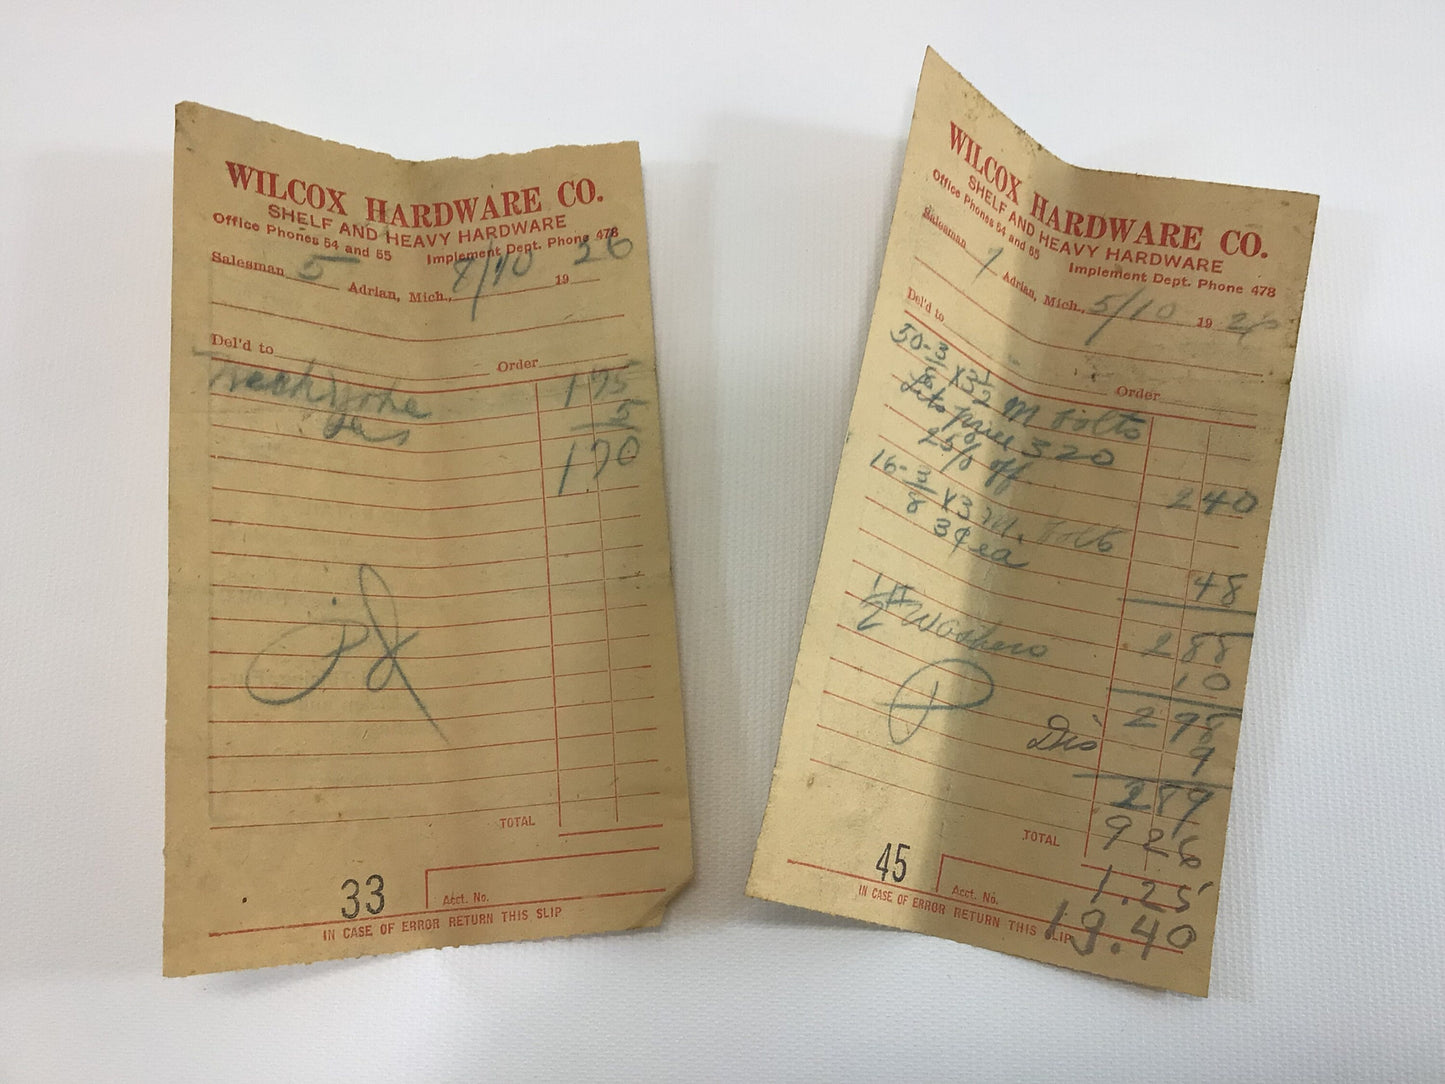 WILCOX HARDWARE CO.
SHELF AND HEAVY HARDWARE
Office Phones 54 and 55 Implement Dept. Phone 478
Salesman 5 Adrian, Mich., 8/10 19 26
Del'd to Order
175
5
170
TOTAL
33 Acct. No.
IN CASE OF ERROR RETURN THIS SLIP
WILCOX HARDWARE CO.
SHELF AND HEAVY HARDWARE
Office Phones 54 and 55 Implement Dept. Phone 478
Salesman 7 Adrian, Mich., 5/10 19 26
Del'd to Order
50-3/8 x 3 1/2 M bolts
price 320
25% off 240
16-3/8 x 3 M. bolts
3¢ ea 48
288
1/2 # Washers 10
298
Dis 9
289
TOTAL 926
1.25
45 Acct. No.
IN CASE OF ERROR RETURN THIS SLIP 13.40